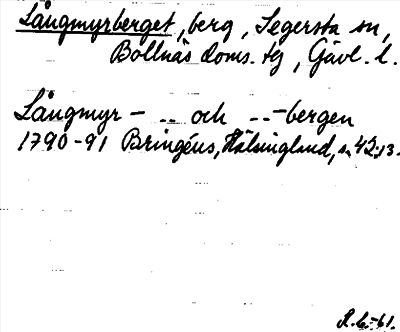 Långmyrberget, berg, Segersta sn,
Bollnäs doms. tg, Gävl. l.
Långmyr - .. och ..-bergen
1790-91 Bringéus, Hälsingland, s. 42.13.
R.G.-61.